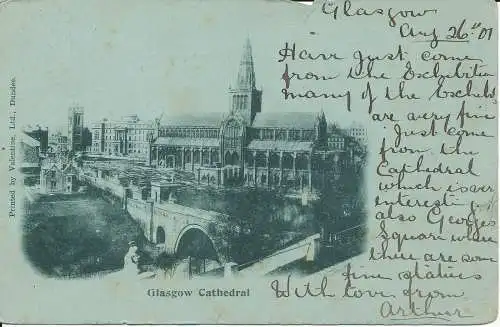 Glasgow
Aug 26" 01
Have just come
from the Exhibition
many of the Exhibits
are very fine
Just come
from the
Cathedral
which is very
interesting
also Georges
Square where
there are some
fine statues
With love from
Arthur
Glasgow Cathedral
Printed by Valentine Ltd., Dundee.